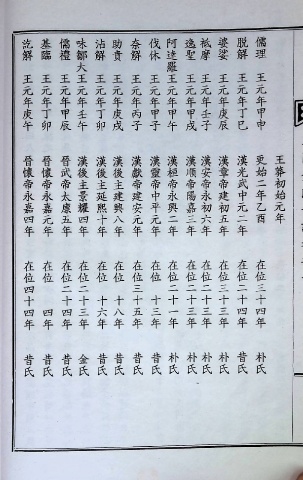 王莽初始元年
儒理 王元年甲申 更始二年乙酉 在位三十四年 朴氏
脫解 王元年丁巳 漢光武中元二年 在位二十四年 昔氏
婆娑 王元年庚辰 漢章帝建初五年 在位三十三年 朴氏
祗摩 王元年壬子 漢安帝永初六年 在位二十三年 朴氏
逸聖 王元年甲戌 漢順帝陽嘉三年 在位二十年 朴氏
阿達羅 王元年甲午 漢桓帝永興二年 在位二十一年 朴氏
伐休 王元年甲 漢靈帝中平元年 在位十三年 昔氏
奈解 王元年丙子 漢獻帝建安元年 在位三十五年 昔氏
助賁 王元年庚戌 漢後主建興八年 在位十八年 昔氏
沾解 王元年丁卯 漢後主延熙十年 在位十六年 昔氏
味鄒 王元年壬午 漢後主景耀四年 在位二十三年 金氏
儒禮 王元年甲辰 晉武帝太康五年 在位二十四年 昔氏
基臨 王元年丁卯 晉懷帝永嘉元年 在位四年 昔氏
訖解 王元年庚午 晉懷帝永嘉四年 在位四十四年 昔氏